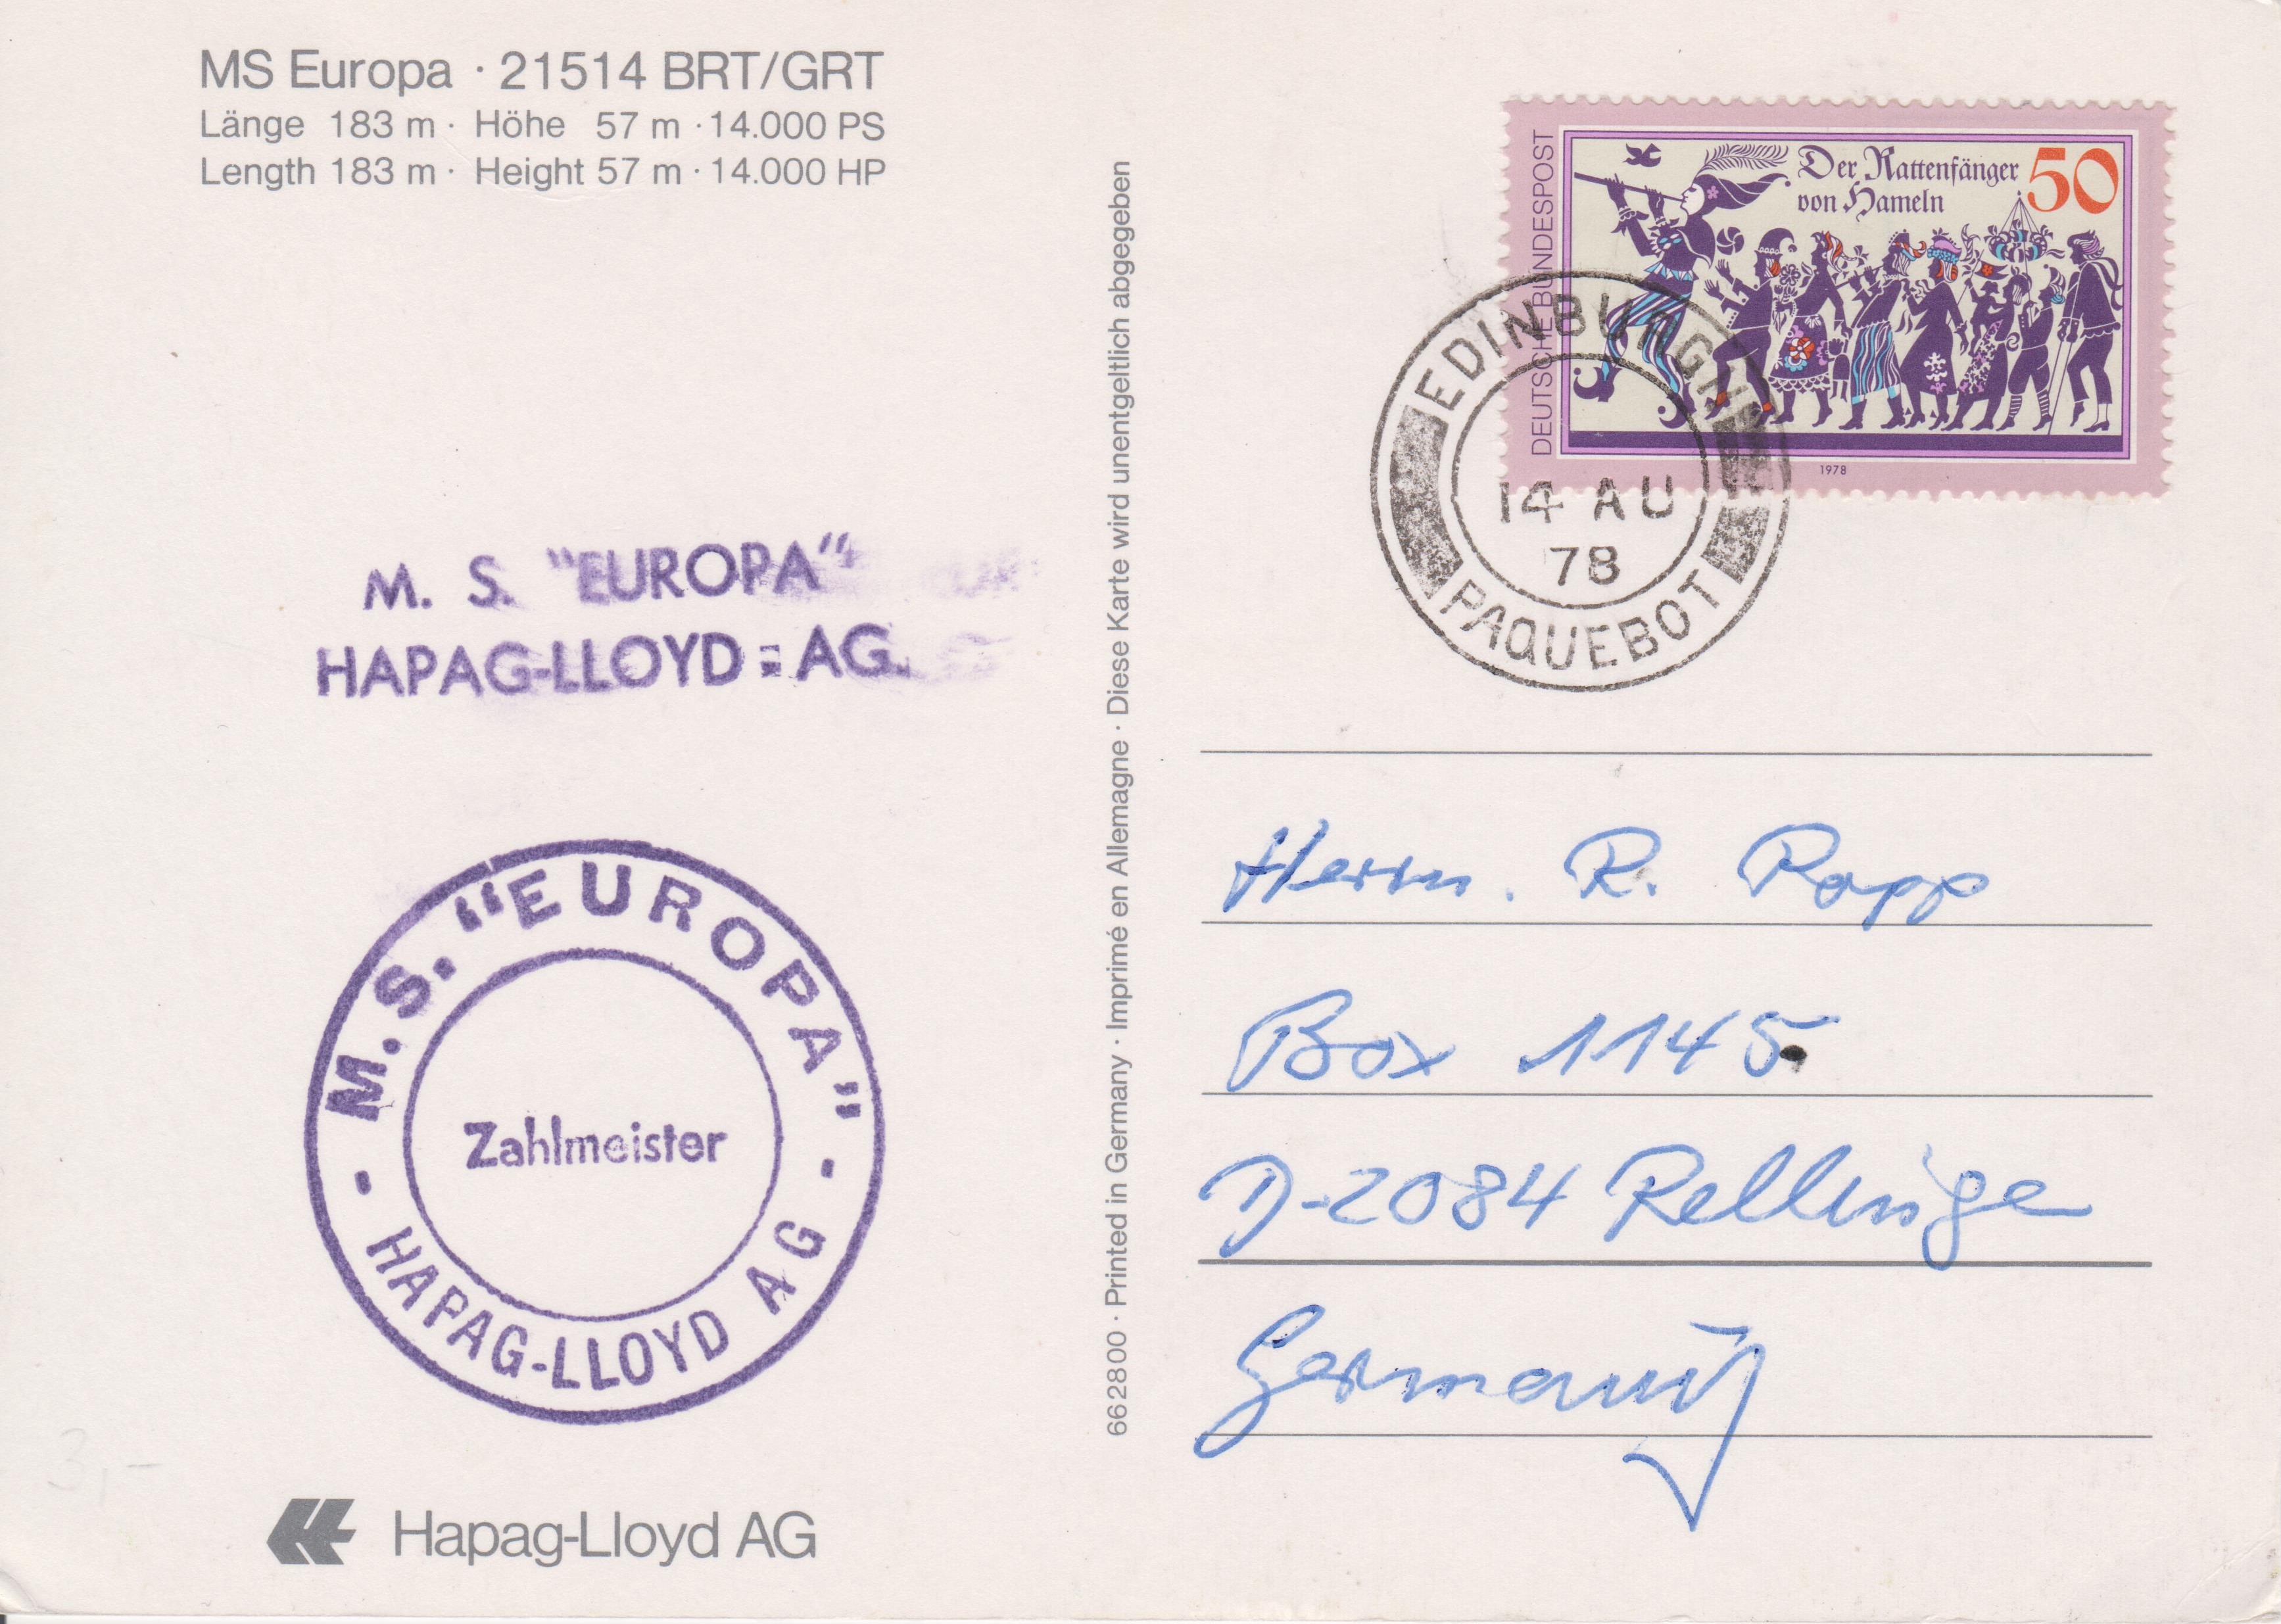 MS Europa · 21514 BRT/GRT
Länge 183 m · Höhe 57 m · 14.000 PS
Length 183 m · Height 57 m · 14.000 HP
M. S. "EUROPA"
HAPAG-LLOYD = AG.
M.S. "EUROPA"
Zahlmeister
- HAPAG-LLOYD AG -
3,-
Hapag-Lloyd AG
662800 · Printed in Germany · Imprimé en Allemagne · Diese Karte wird unentgeltlich abgegeben
DEUTSCHE BUNDESPOST
Der Rattenfänger
von Hameln
50
1978
EDINBURGH
14 AU
78
PAQUEBOT
Herrn. R. Rapp
Box 1145
D-2084 Rellinge
Germany